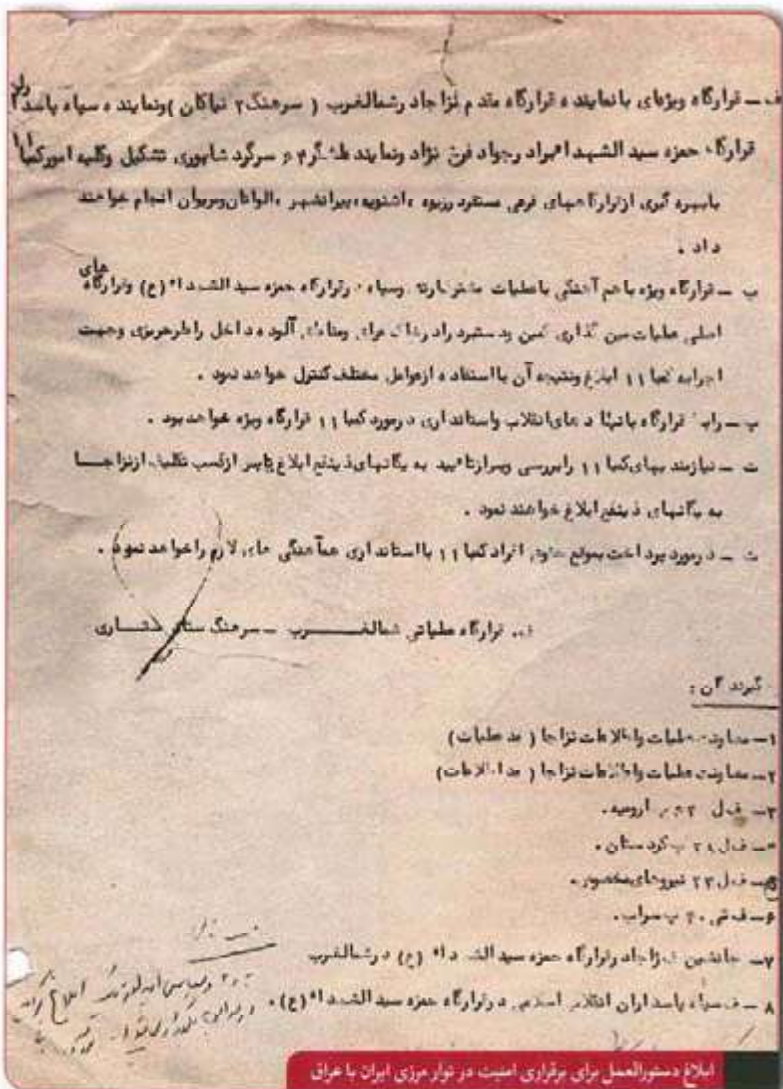 ف ـ قرارگاه ویژه‌ای با نماینده قرارگاه مقدم نزاجا در شمالغرب ( سرهنگ ۲ نیاکان ) و نماینده سپاه پاسد
قرارگاه حمزه سید الشهدا برادر جواد فرخ نژاد و نماینده لشگر ۶۴ سرگرد شاپوری تشکیل و کلیه امور کمپا ۱۱
با بهره گیری از قرارگاههای فرعی مستقر در ربوه ، اشنویه ، پیرانشهر ، الواتان و مریوان انجام خواهند
داد .
ب ـ قرارگاه ویژه با هم آهنگی با عملیات ارتش و سپاه در قرارگاه حمزه سید الشهدا (ع) و قرارگاه های
اصلی عملیات مین گذاری کمین و دستبرد را در و مناطق آلوده داخل را طرحریزی و جهت
اجرا به کمپا ۱۱ ابلاغ و نتیجه آن با استفاده از عوامل مختلف کنترل خواهد نمود .
پ ـ رابط قرارگاه با نهاد های انقلاب و استانداری در مورد کمپا ۱۱ قرارگاه ویژه خواهد بود .
ت ـ نیازمندیهای کمپا ۱۱ را بررسی و پس از تائید به یگانهای ذینفع ابلاغ یا پس از کسب تکلیف از نزاجا
به یگانهای ذینفع ابلاغ خواهند نمود .
ث ـ در مورد پرداخت بموقع حقوق افراد کمپا ۱۱ با استانداری هم‌آهنگی های لازم را خواهد نمود .
ف . قرارگاه عملیاتی شمالغرب ـ سرهنگ ستاد
گیرندگان :
۱ـ معاونت عملیات و اطلاعات نزاجا ( مد عملیات )
۲ـ معاونت عملیات و اطلاعات نزاجا ( مد اطلاعات )
۳ـ ف ل ارومیه .
۴ـ ف ل ۲۸ پ کردستان .
۵ـ ف ل ۲۳ نیروهای مخصوص .
۶ـ ف تی ۴۰ پ سراب .
۷ـ جانشین ف نزاجا در قرارگاه حمزه سید الشهدا (ع) در شمالغرب
۸ ـ ف سپاه پاسداران انقلاب اسلامی در قرارگاه حمزه سید الشهدا (ع) .
ابلاغ دستورالعمل برای برقراری امنیت در نوار مرزی ایران با عراق